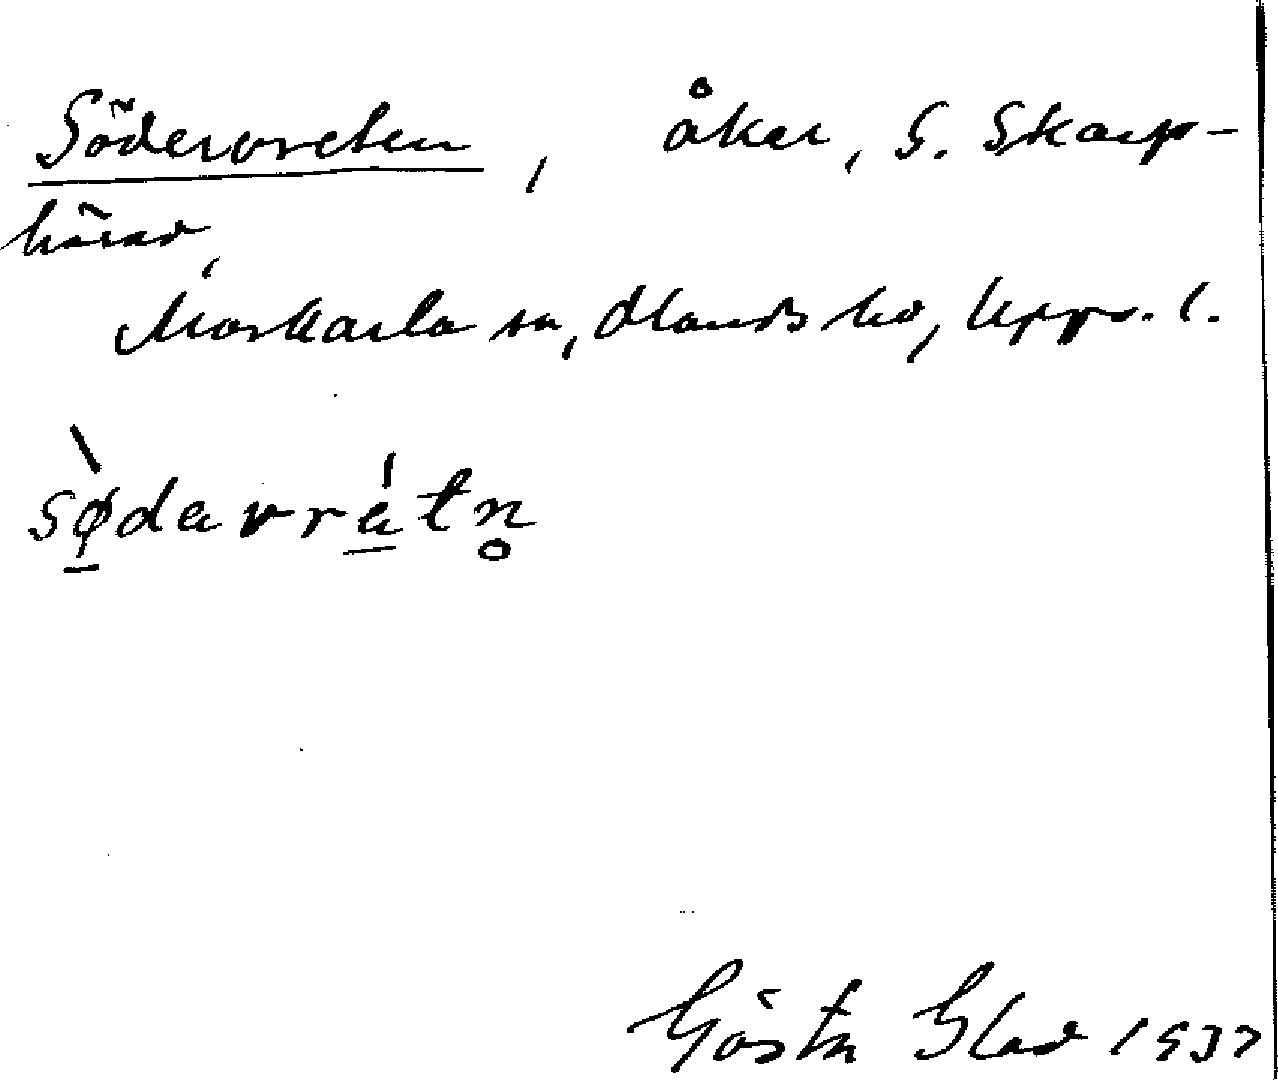 Södervreten, åker, S. Skarp-
härad,
Morkarla sn, Olands hd, Upps. l.
sø̀davrátn̥
Gösta Glad 1937